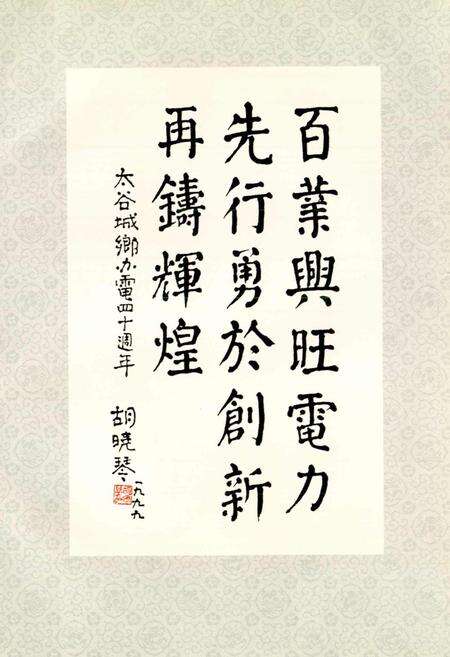 百業興旺電力
先行勇於創新
再鑄輝煌
太谷城鄉办電四十週年
胡曉琴
一九九九